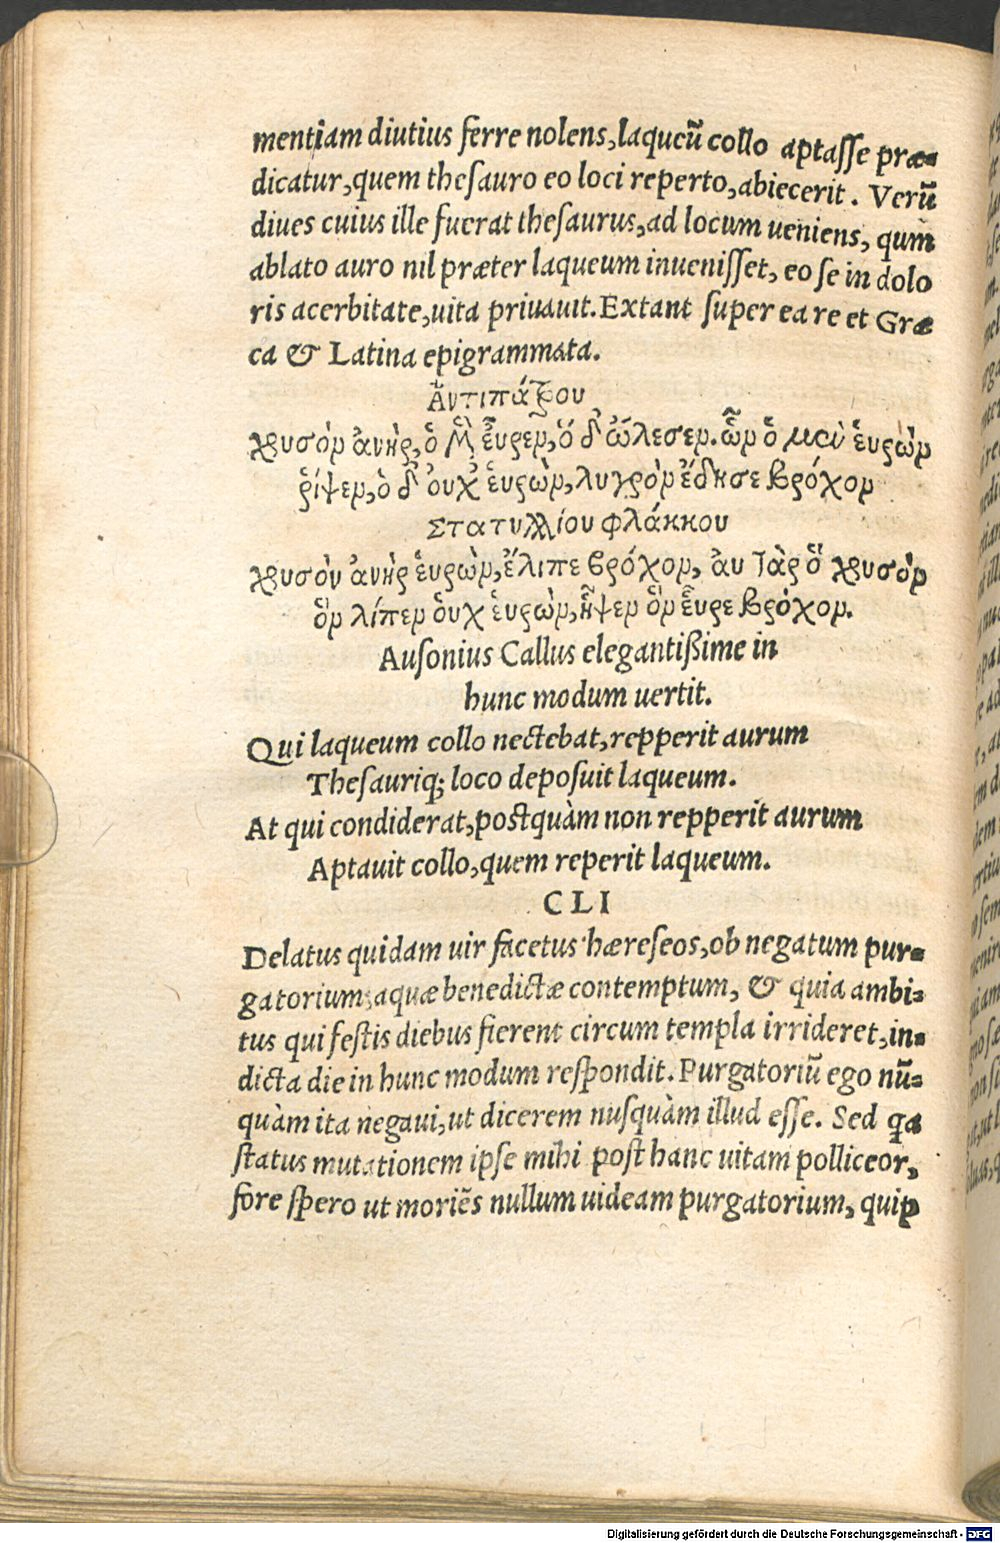 mentiam diutius ferre nolens, laqueū collo aptasse præ-
dicatur, quem thesauro eo loci reperto, abiecerit. Verū
diues cuius ille fuerat thesaurus, ad locum ueniens, qum
ablato auro nil præter laqueum inuenisset, eo se in dolo
ris acerbitate, uita priuauit. Extant super ea re et Græ
ca & Latina epigrammata.
Ἀντιπάτρου
χρυσὸν ἀνὴρ, ὁ μὲν εὗρεν, ὁ δ' ὤλεσεν. ὧν ὁ μὲν εὑρὼν
ῥίψεν, ὁ δ' οὐχ εὑρὼν, λυγρὸν ἔδησε βρόχον
Στατυλλίου φλάκκου
χρυσὸν ἀνὴρ εὑρὼν, ἔλιπε βρόχον, αὐ τὰρ ὃ χρυσὸν
ὃν λίπεν ὀυχ εὑρὼν, ἧψεν ὃν εὗρε βρόχον.
Ausonius Callus elegantißime in
hunc modum uertit.
Qui laqueum collo nectebat, repperit aurum
Thesauriq; loco deposuit laqueum.
At qui condiderat, postquàm non repperit aurum
Aptauit collo, quem reperit laqueum.
CLI
Delatus quidam uir facetus hæreseos, ob negatum pur-
gatorium, aquæ benedictæ contemptum, & quia ambi-
tus qui festis diebus fierent circum templa irrideret, in-
dicta die in hunc modum respondit. Purgatoriū ego nū-
quàm ita negaui, ut dicerem nusquàm illud esse. Sed qa
status mutationem ipse mihi post hanc uitam polliceor,
fore spero ut moriēs nullum uideam purgatorium, quip
Digitalisierung gefördert durch die Deutsche Forschungsgemeinschaft - DFG